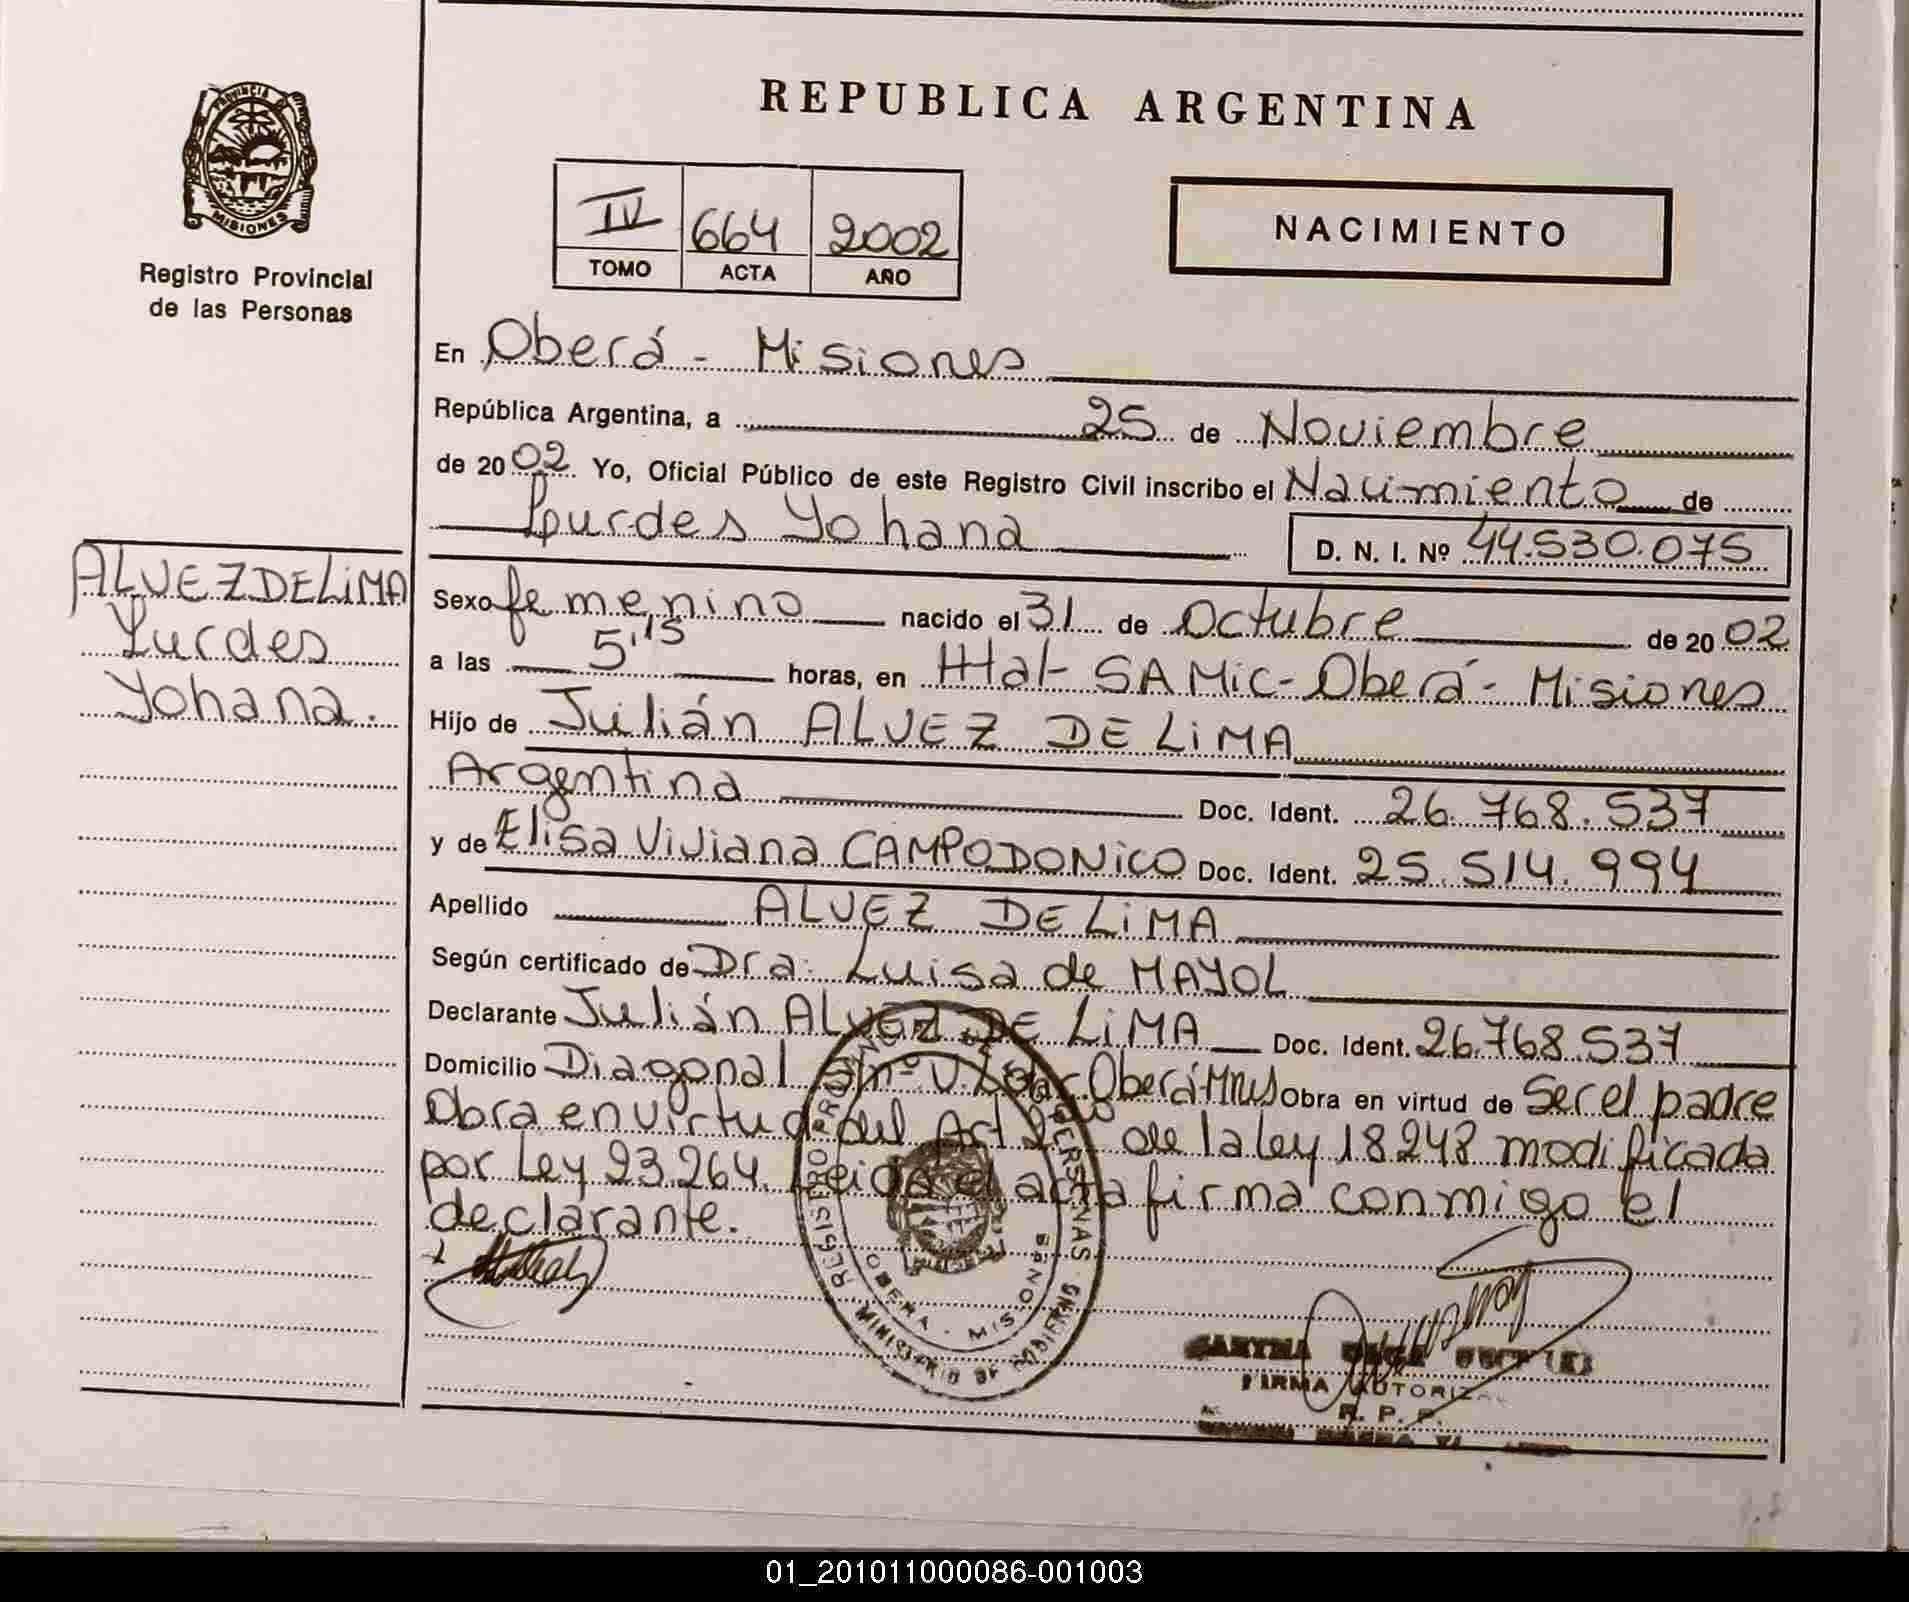 REPUBLICA ARGENTINA
PROVINCIA DE
MISIONES
Registro Provincial
de las Personas
IV 664 2002
TOMO ACTA AÑO
NACIMIENTO
En Oberá - Misiones
República Argentina, a 25 de Noviembre
de 2002 Yo, Oficial Público de este Registro Civil inscribo el Nacimiento de
Lourdes Yohana
D. N. I. Nº 44.530.075
ALVEZ DE LIMA
Lurdes
Yohana.
Sexo femenino nacido el 31 de Octubre de 2002
a las 5,15 horas, en Htal- SAMic- Oberá- Misiones
Hijo de Julián ALVEZ DE LiMA
Argentina Doc. Ident. 26.768.537
y de Elisa Viviana CAMPODONiCO Doc. Ident. 25.514.994
Apellido ALVEZ DE LiMA
Según certificado de Dra. Luisa de MAYOL
Declarante Julián ALVEZ DE LiMA Doc. Ident. 26.768.537
Domicilio Diagonal S/nº V. Oberá-Mnes Obra en virtud de Ser el padre
Obra en virtud del Art de la ley 18248 modificada
por Ley 23.264. Leida el acta firma conmigo el
declarante.
REGISTRO PROVINCIAL DE LAS PERSONAS
MINISTERIO DE GOBIERNO
OBERA - MISIONES
FIRMA AUTORIZA
R. P. P.
01_201011000086-001003